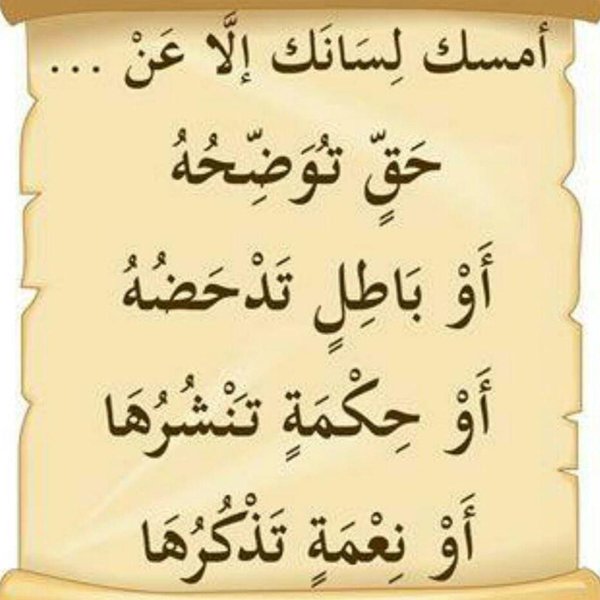 أمسك لِسَانَك إلَّا عَنْ ...
حَقٍّ تُوَضِّحُهُ
أَوْ بَاطِلٍ تَدْحَضُهُ
أَوْ حِكْمَةٍ تَنْشُرُهَا
أَوْ نِعْمَةٍ تَذْكُرُهَا